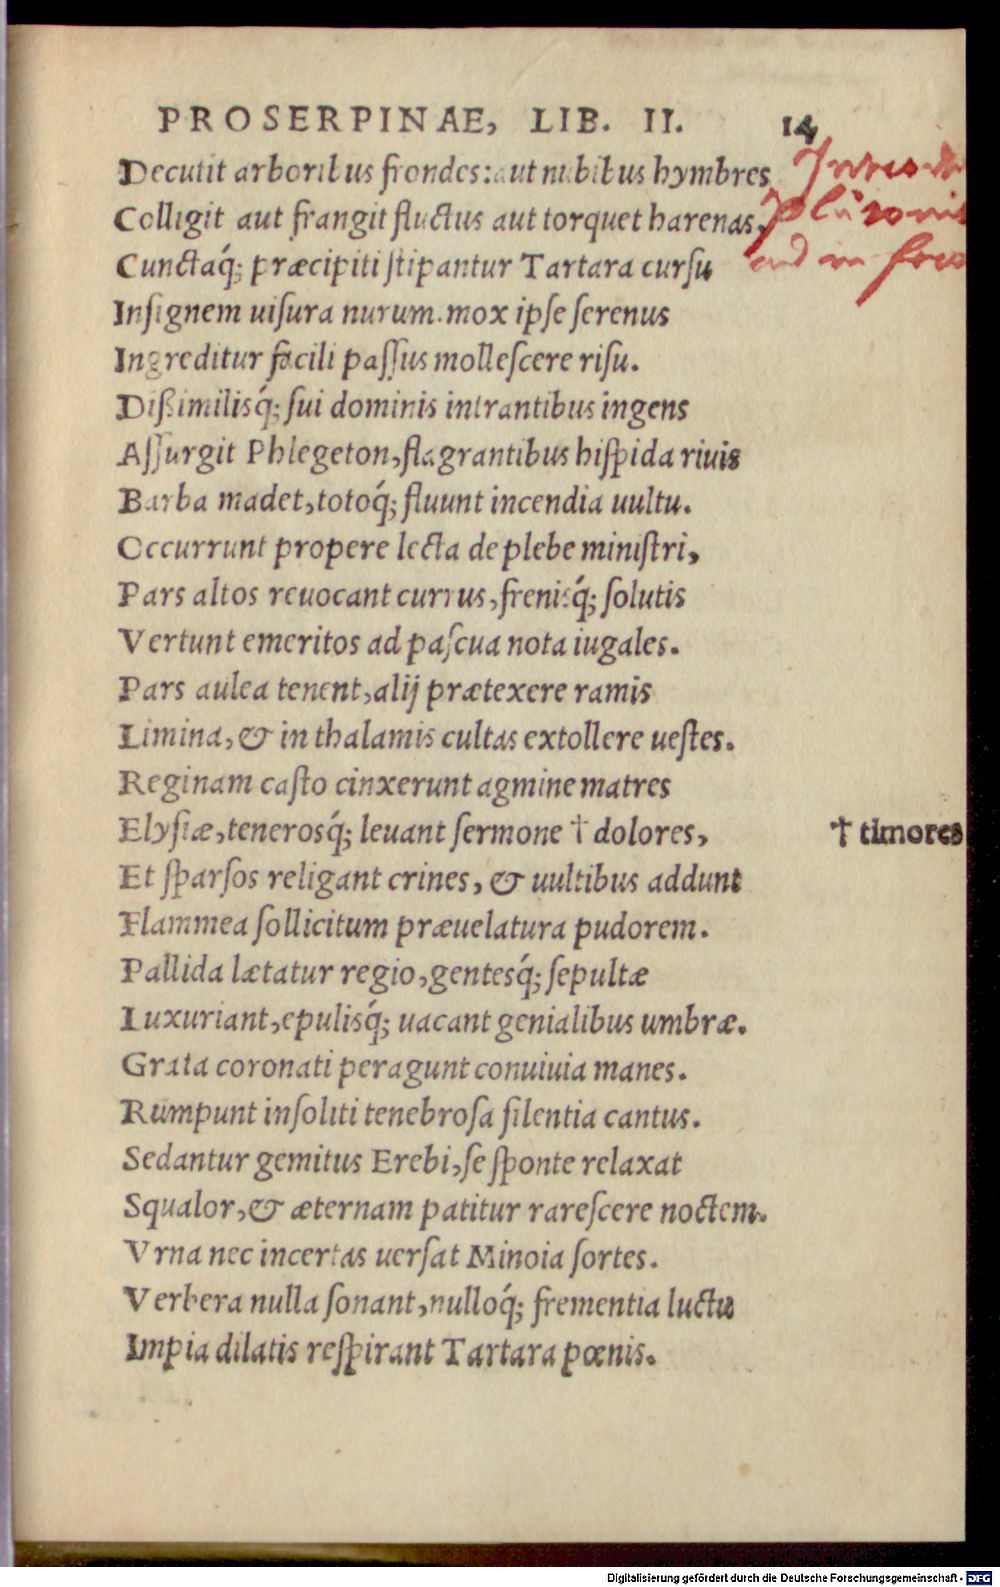 PROSERPINAE, LIB. II. 14
Decutit arboribus frondes: aut nubibus hymbres
Colligit aut frangit fluctus aut torquet harenas.
Cunctaq́; præcipiti stipantur Tartara cursu
Insignem uisura nurum. mox ipse serenus
Ingreditur facili passus mollescere risu.
Dißimilisq́; sui dominis intrantibus ingens
Assurgit Phlegeton, flagrantibus hispida riuis
Barba madet, totoq́; fluunt incendia uultu.
Occurrunt propere lecta de plebe ministri,
Pars altos reuocant currus, frenisq́; solutis
Vertunt emeritos ad pascua nota iugales.
Pars aulea tenent, alij prætexere ramis
Limina, & in thalamis cultas extollere uestes.
Reginam casto cinxerunt agmine matres
Elysiæ, tenerosq́; leuant sermone † dolores,
† timores
Et sparsos religant crines, & uultibus addunt
Flammea sollicitum præuelatura pudorem.
Pallida lætatur regio, gentesq́; sepultæ
Luxuriant, epulisq́; uacant genialibus umbræ.
Grata coronati peragunt conuiuia manes.
Rumpunt insoliti tenebrosa silentia cantus.
Sedantur gemitus Erebi, se sponte relaxat
Squalor, & æternam patitur rarescere noctem.
Vrna nec incertas uersat Minoia sortes.
Verbera nulla sonant, nulloq́; frementia luctu
Impia dilatis respirant Tartara pœnis.
Digitalisierung gefördert durch die Deutsche Forschungsgemeinschaft - DFG